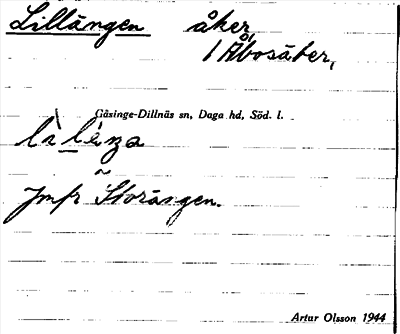 Lillängen åker
1 Åbosäter,
Gåsinge-Dillnäs sn, Daga hd, Söd. l.
Jmfr Storängen.
Artur Olsson 1944